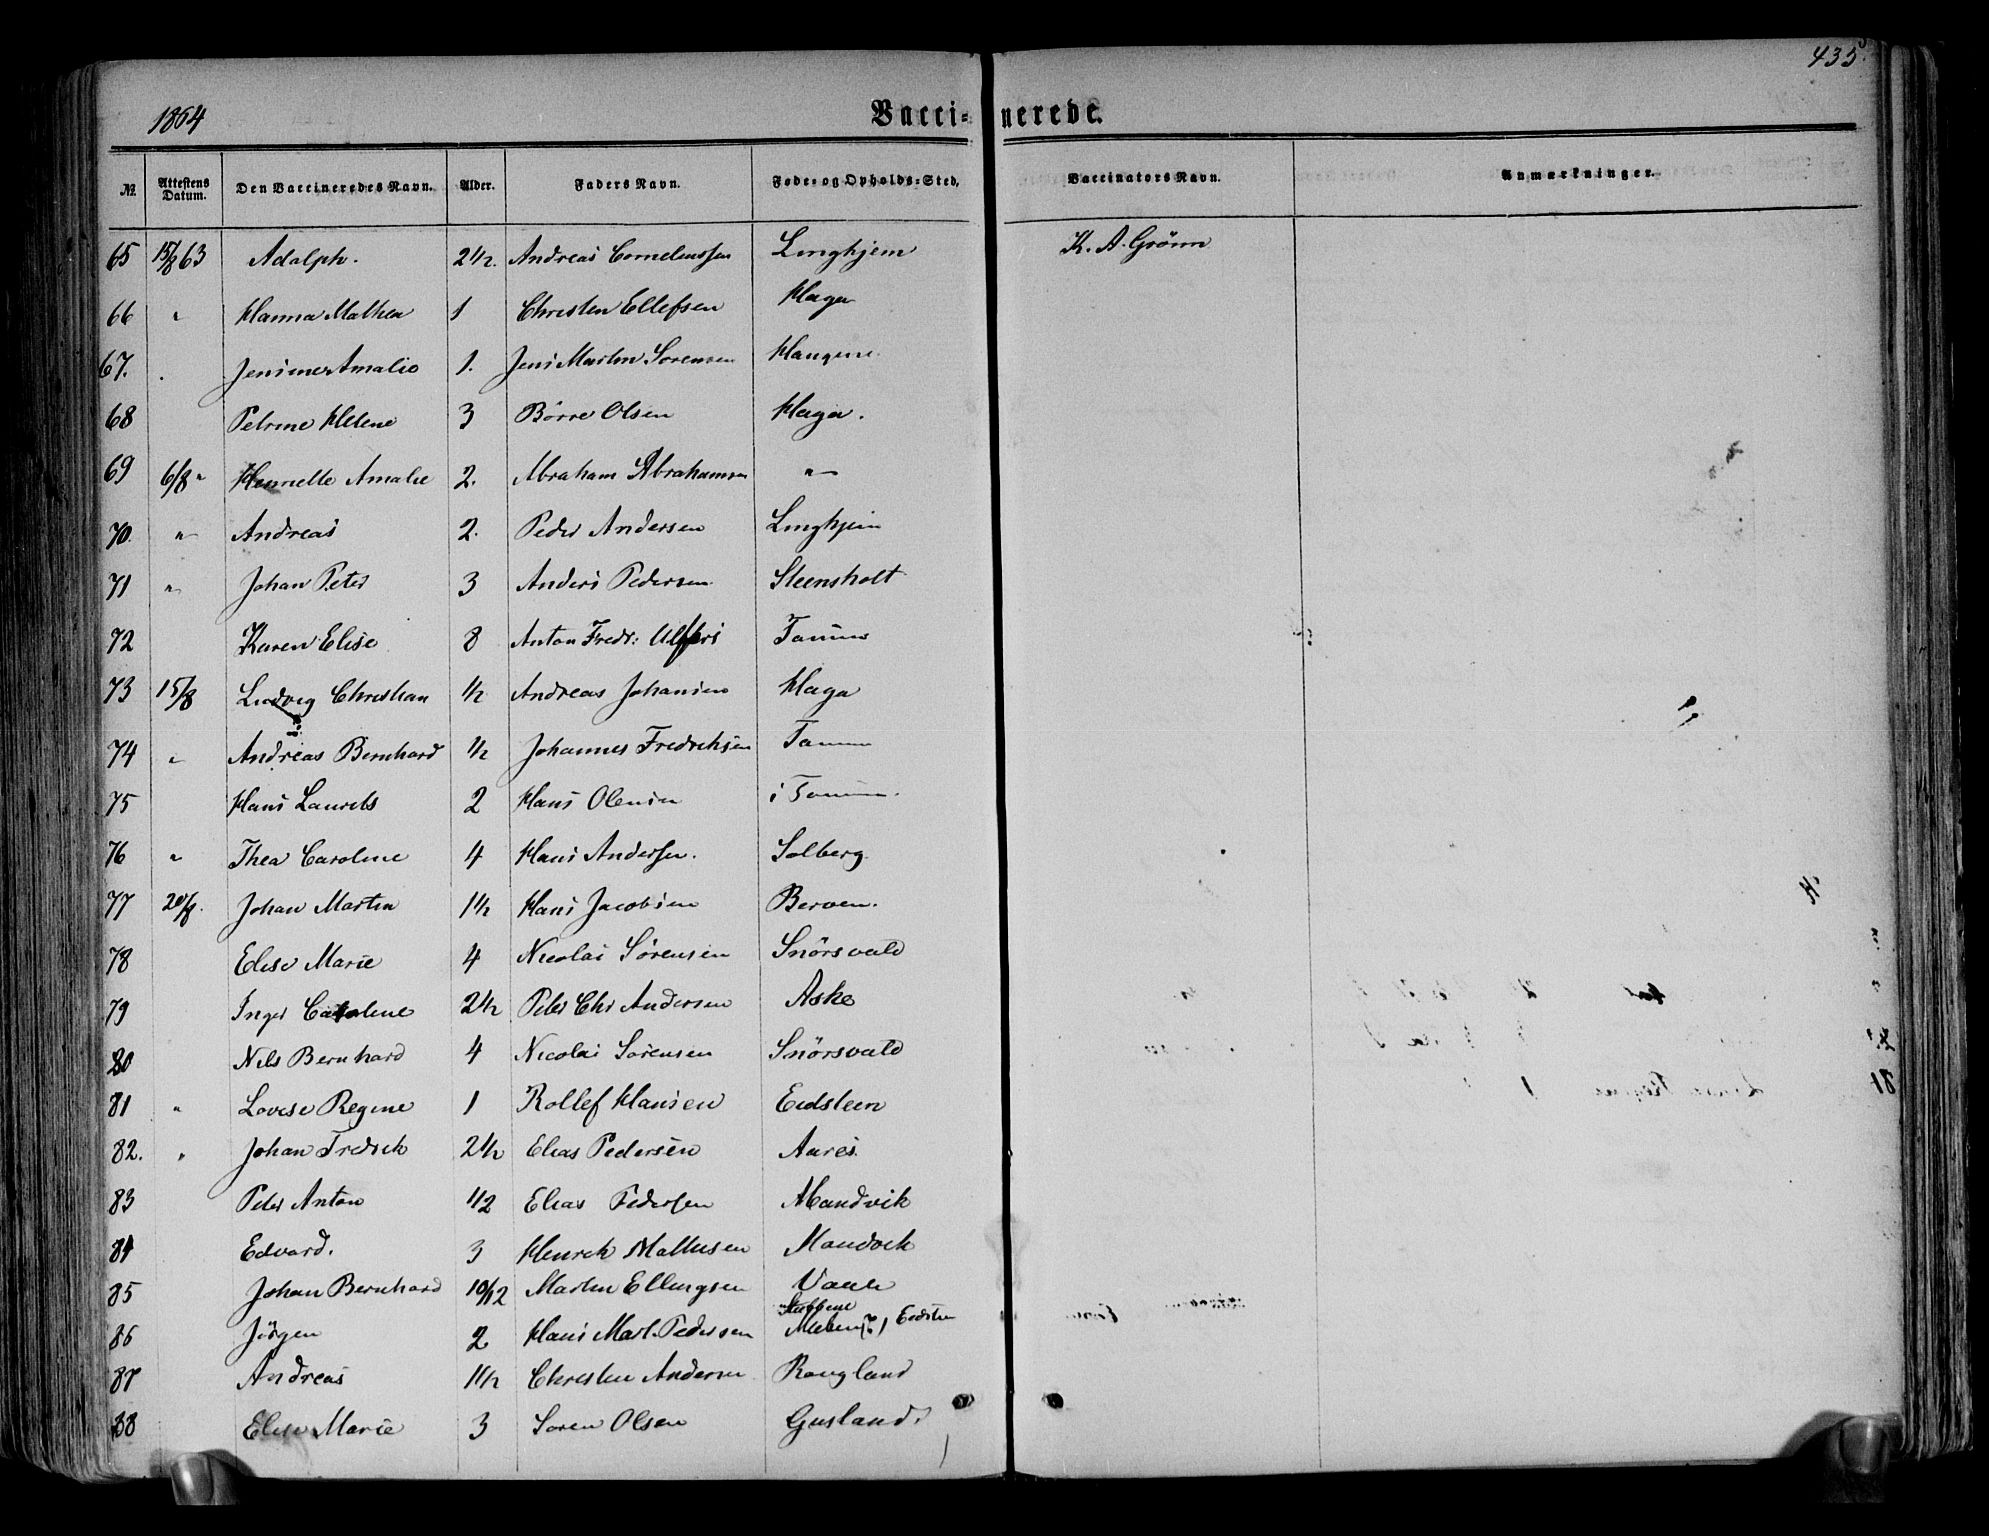 435
1864
Vacci-nerede.
№ Attestens Datum. Den Vaccineredes Navn. Alder. Faders Navn. Føde- og Opholds-Sted. Vaccinators Navn. Anmærkninger.
65 15/8 63 Adolph. 2 1/2. Andreas Corneliussen Linghjem K. A. Grönn
66 " Hanna Mathea 1 Christen Ellefsen Haga
67. . Jensine Amalie 1. Jens Martin Sorensen Haugene
68 Petrine Helene 3 Börre Olsen Haga.
69 6/8 " Henriette Amalie 2. Abraham Abrahamsen "
70 " Andreas 2. Peder Andersen Linghjem
71 " Johan Peter 3 Anders Pedersen Steensholt
72 Karen Elise 8 Anton Fredr: Tanum
73 15/8 Ludvig Christian 1/2 Andreas Johansen Haga
74 " Andreas Bernhard 1/2 Johannes Fredriksen Tanum
75 Hans Laurits 2 Hans Olensen i Tanum.
76 " Thea Caroline 4 Hans Andersen. Solberg.
77 20/8. Johan Martin 1 1/2 Hans Jacobsen Berven.
78 Elise Marie 4 Nicolai Sörensen Snörsvald
79 Inger Caroline 2 1/2 Peter Chr Andersen Aske
80 Nils Bernhard 4 Nicolai Sörensen Snörsvald
81 " Lovise Regine 1 Rollef Hansen Eidsteen
82. " Johan Fredrik 2 1/2 Elias Pedersen Aares
83 Peter Anton 1/2 Elias Pedersen Mandvik
84 Edvard. 3 Henrik Mathisen Mandvik
85 Johan Bernhard 10/12 Martin Ellingsen Vaale
86 Jörgen 2 Hans Mart. Pedersen Eidsten
87 Andreas 1 1/2 Christen Andersen Raugland
88 Elise Marie 3 Soren Olsen Gusland.